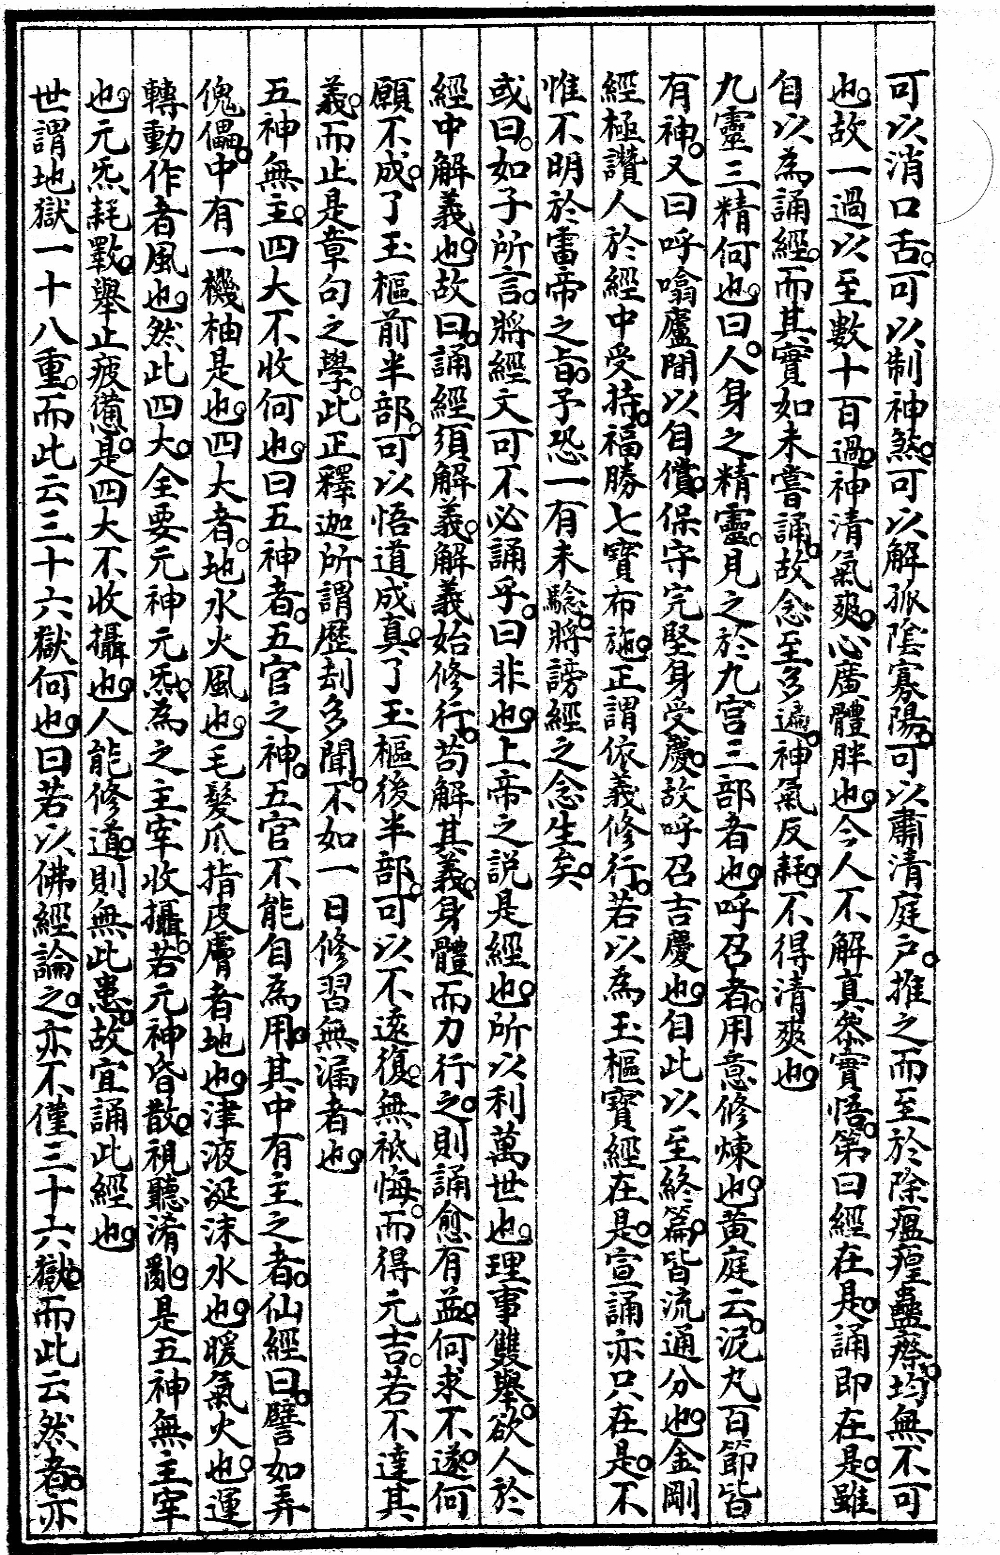 可以消口舌可以制神煞可以解孤陰寡陽可以肅清庭戶推之而至於除瘟瘴蠱瘵均無不可
也故一過以至數十百過神清氣爽心廣體胖也今人不解真參實悟第曰經在是誦即在是雖
自以為誦經而其實如未嘗誦故念至多遍神氣反耗不得清爽也
九靈三精何也曰人身之精靈見之於九宮三部者也呼召者用意修煉也黃庭云泥丸百節皆
有神又曰呼噏廬間以自償保守完堅身受慶故呼召吉慶也自此以至終篇皆流通分也金剛
經極讚人於經中受持福勝七寶布施正謂依義修行若以為玉樞寶經在是宣誦亦只在是不
惟不明於雷帝之旨予恐一有未驗將謗經之念生矣
或曰如子所言將經文可不必誦乎曰非也上帝之説是經也所以利萬世也理事雙舉欲人於
經中解義也故曰誦經須解義解義始修行苟解其義身體而力行之則誦愈有益何求不遂何
願不成了玉樞前半部可以悟道成真了玉樞後半部可以不遠復無祇悔而得元吉若不達其
義而止是章句之學此正釋迦所謂歷刦多聞不如一日修習無漏者也
五神無主四大不收何也曰五神者五官之神五官不能自為用其中有主之者仙經曰譬如弄
傀儡中有一機柚是也四大者地水火風也毛髮爪指皮膚者地也津液涎沫水也暖氣火也運
轉動作者風也然此四大全要元神元炁為之主宰收攝若元神昏散視聽淆亂是五神無主宰
也元炁耗斁舉止疲憊是四大不收攝也人能修道則無此患故宜誦此經也
世謂地獄一十八重而此云三十六獄何也曰若以佛經論之亦不僅三十六獄而此云然者亦